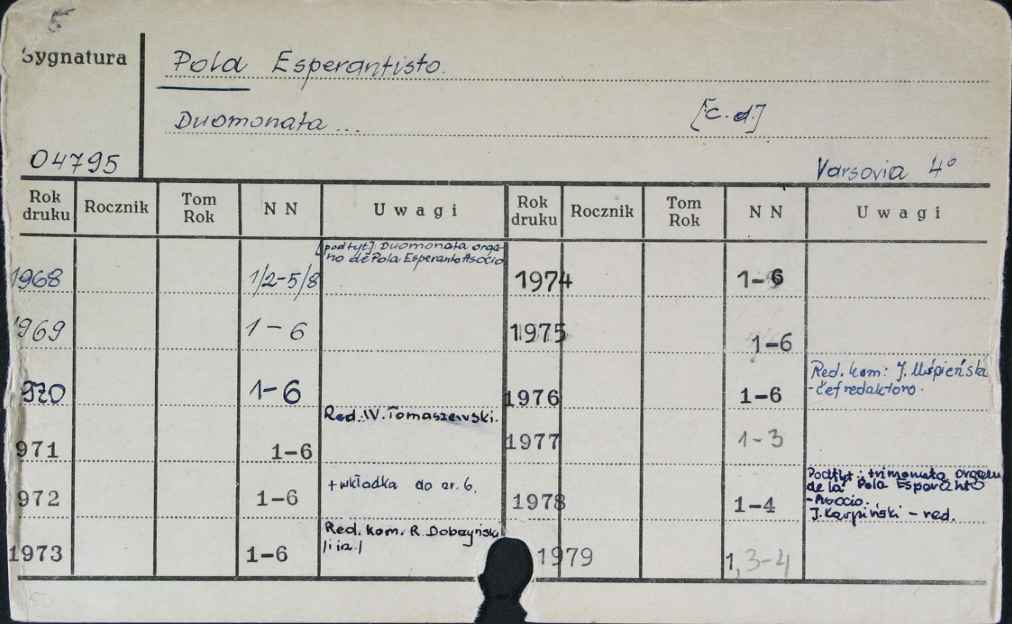 5
Sygnatura
Pola Esperantisto.
Duomonata ... [c.d.]
04795
Varsovia 4°
Rok druku Rocznik Tom Rok N N Uwagi Rok druku Rocznik Tom Rok N N Uwagi
[podtyt.] Duomonata orga-
no de Pola Esperanto Asocio
1968 1/2-5/8 1974 1-6
1969 1-6 1975 1-6
Red. kom: J. Uśpieńska
-ĉefredaktoro.
970 1-6 1976 1-6
Red. W. Tomaszewski.
971 1-6 1977 1-3
+wkładka do nr. 6.
Podtyt: trimonata organo
de la Pola Esperanto
-Asocio.
J. Karpiński - red.
972 1-6 1978 1-4
Red. kom. R. Dobrzyński
/i in./
1973 1-6 1979 1, 3-4